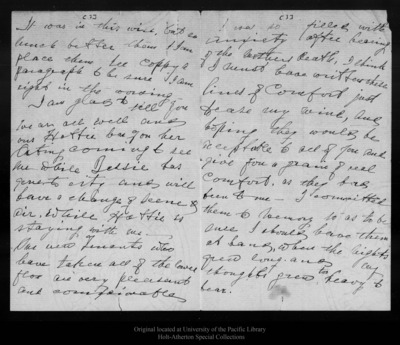 (2
It was in this wise, but
hence better than I can
place them we copy a
paragraph to be sure I am
right in the wording
I am glad to tell you
we are all well and
our Hattie has you her
coming to see
me while Jessie has
gone to city and will
have a change of scene &
air. While Hattie is
staying with me
The new tenants who
have taken all of the lower
floor are very pleasant
and companionable
(3
I was so filled with
anxiety after hearing
of the brothers death, I think
I must have written these
lines of Comfort just
to ease my mind, and
hoping they would be
acceptable to all of you and
give you a grain of real
comfort, as they had
been to me — I committed
them to memory so as to be
sure I should have them
at hand, when the nights
grew long and my
thoughts grew too heavy to
bear.
Original located at University of the Pacific Library
Holt-Atherton Special Collections